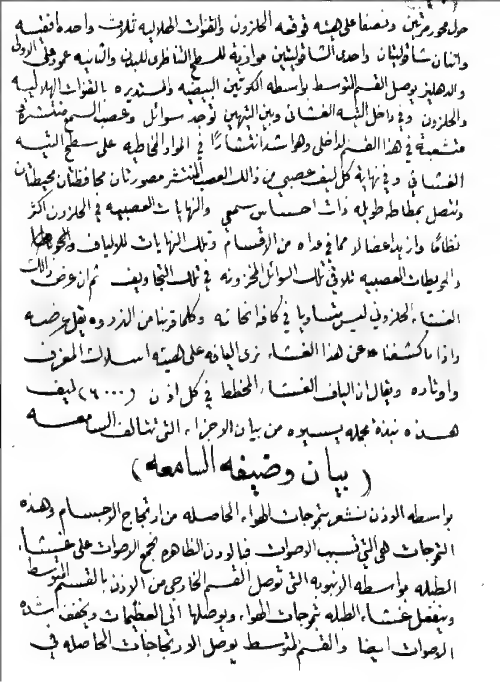 حول محور مرتين ونصفا على هيئة قوقعه الحلزون والقنوات الهلاليه ثلاث واحده افقيه
واثنان شاقوليتان واحدى الشاقوليتين موازية للسطح الناظرى للبدن والثانيه عمود على الاولى
والدهليز يوصل القسم المتوسط بواسطه الكوتين البيضيه والمستديره بالقنوات الهلاليه
والحلزون وفى داخل التيه الغشائى وبين التيهين توجد سوائل وعصب السمع منتشرة
متشعبة فى هذا القسم الداخلى وهو اشد انتشارًا فى المواد المخاطيه على سطح التيه
الغشائى وفى نهاية كل ليف عصبى من ذالك العصب المنتشر محافظتان محيطتان
وتتصل بمطاطه طويله ذات احساس سمعى والنهايات العصبيه فى الحلزون اكثر
نظامًا وازيد اعضالا مما فى عداه من الاقسام وتلك النهايات للالياف
والخويطات العصبيه تلاقى تلك السوائل المخزونه فى تلك التجاويف ثم ان عرض ذالك
الغشاء الحلزونى ليس متساويا فى كافة انحائه وكلما قربنا من الذروه يقل عرضه
واذا ماكشفنا عن هذا الغشاء نرى اليافه على هيئة اسلاك المعزف
واوتاره ويقال ان الياف الغشاء المخطط فى كل اذن (٦٠٠٠) ليف
هذه نبذة مجمله يسيره من بيان الاجزاء التى تتالف السامعه
(بيان وضيفه السامعه)
بواسطه الاذن نشعر بتموجات الهواء الحاصله من ارتجاج الاجسام وهذه
التموجات هى التى تسبب الاصوات فبالاذن الظاهره تجمع الاصوات على غشاء
الطبله بواسطه الانبوبه التى توصل القسم الخارجى من الاذن بالقسم المتوسط
وينفعل غشاء الطبله بتموجات الهواء ويوصلها الى العظيمات ويخفف شده
الاصوات ايضا والقسم المتوسط يوصل الارتجاجات الحاصله فى